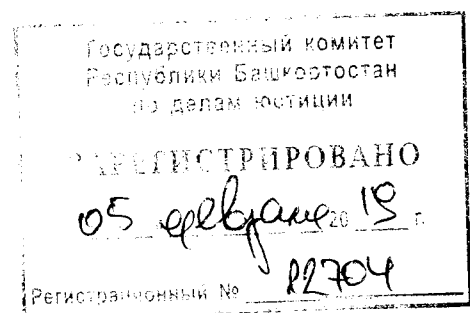 Государственный комитет
Республики Башкортостан
по делам юстиции
ЗАРЕГИСТРИРОВАНО
05 февраля 2019 г.
Регистрационный № 12704